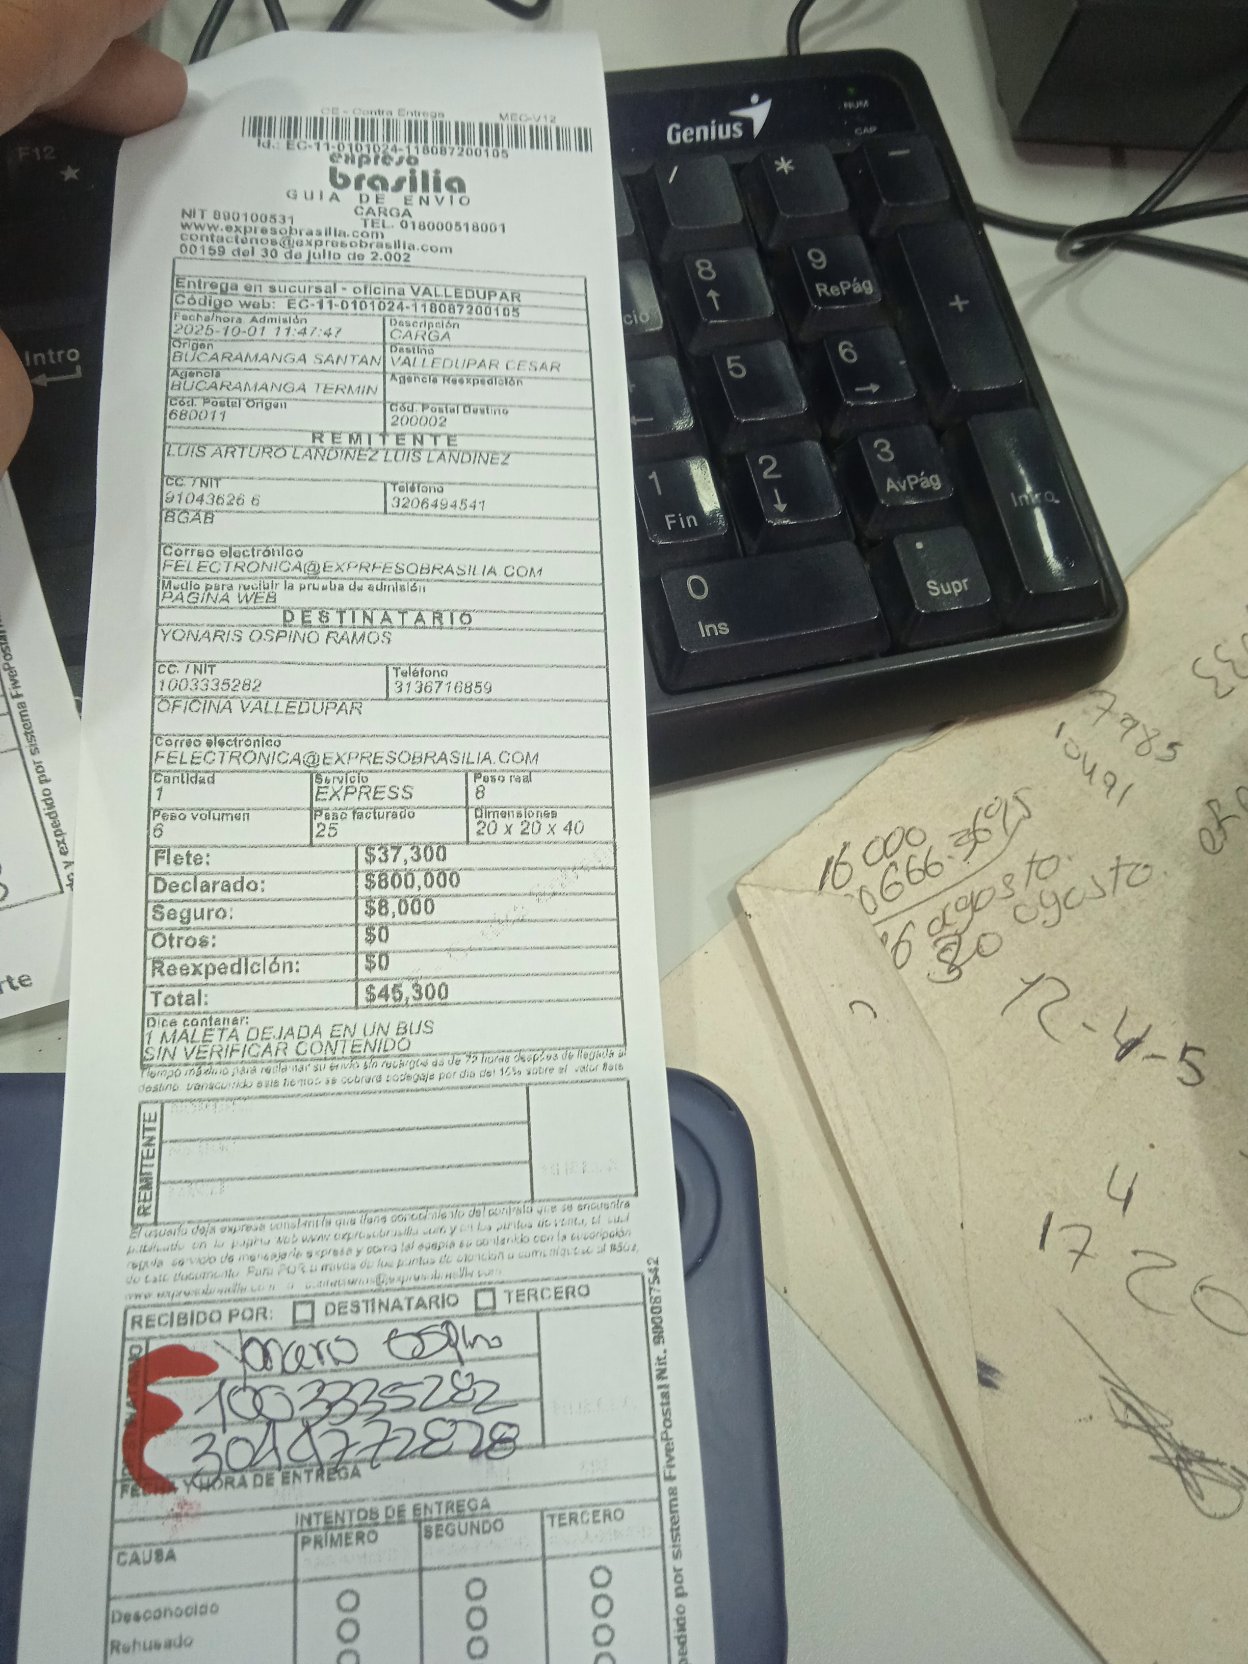 CE - Contra Entrega MEC-V12
Id.: EC-11-0101024-118087200105
expreso
brasilia
GUIA DE ENVIO
CARGA
NIT 890100531 TEL. 018000518001
www.expresobrasilia.com
contactenos@expresobrasilia.com
00159 del 30 de julio de 2.002
Entrega en sucursal - oficina VALLEDUPAR
Código web: EC-11-0101024-118087200105
Fecha/hora. Admisión Descripción
2025-10-01 11:47:47 CARGA
Origen Destino
BUCARAMANGA SANTAN VALLEDUPAR CESAR
Agencia Agencia Reexpedición
BUCARAMANGA TERMIN
Cód. Postal Origen Cód. Postal Destino
680011 200002
REMITENTE
LUIS ARTURO LANDINEZ LUIS LANDINEZ
CC. / NIT Teléfono
91043626 6 3206494541
BGAB
Correo electrónico
FELECTRONICA@EXPRFESOBRASILIA.COM
Medio para recibir la prueba de admisión
PAGINA WEB
DESTINATARIO
YONARIS OSPINO RAMOS
CC. / NIT Teléfono
1003335282 3136716859
OFICINA VALLEDUPAR
Correo electrónico
FELECTRONICA@EXPRESOBRASILIA.COM
Cantidad Servicio Peso real
1 EXPRESS 8
Peso volumen Peso facturado Dimensiones
6 25 20 x 20 x 40
Flete: $37,300
Declarado: $800,000
Seguro: $8,000
Otros: $0
Reexpedición: $0
Total: $45,300
Dice contener:
1 MALETA DEJADA EN UN BUS
SIN VERIFICAR CONTENIDO
Tiempo máximo para reclamar su envío sin recargos es de 72 horas después de llegada al
destino, transcurrido este tiempo se cobrará bodegaje por día del 15% sobre el valor flete
REMITENTE
El usuario deja expresa constancia que tiene conocimiento del contrato que se encuentra
publicado en la página web www.expresobrasilia.com y en los puntos de venta, el cual
regula servicio de mensajería expresa y como tal acepta su contenido con la suscripción
de este documento. Para PQR a través de los puntos de atención
www.expresobrasilia.com
RECIBIDO POR: DESTINATARIO TERCERO
ospino
1003335282
3044772828
FECHA Y HORA DE ENTREGA
INTENTOS DE ENTREGA
CAUSA PRIMERO SEGUNDO TERCERO
Desconocido
Rehusado
pedido por sistema FivePostal Nit. 900087542
y expedido por sistema FivePostal
rte
F12
Intro
Genius
NUM
CAP
/ * -
8 9 RePág +
5 6
1 Fin 2 3 AvPág
0 Ins . Supr Intro
7985
16 000
agosto
30 agosto
12-4-5
4
17 20